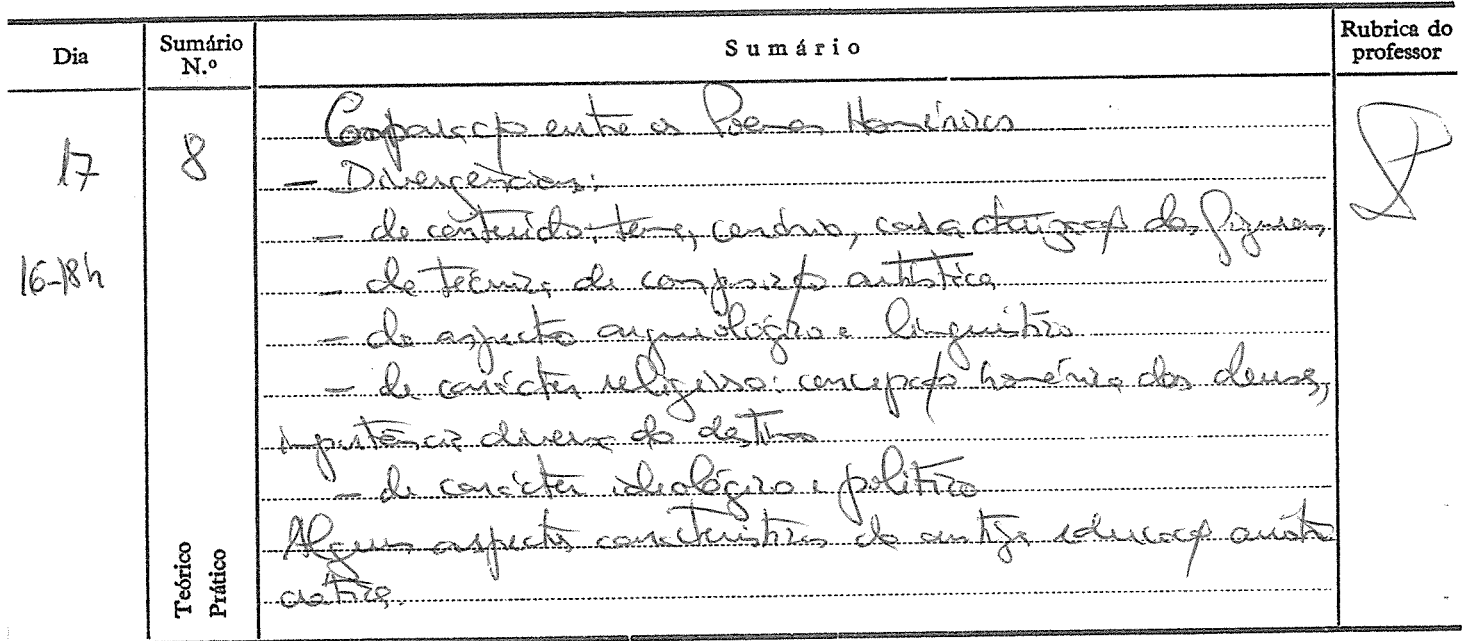 Dia
Sumário N.º
Sumário
Rubrica do professor
17
16-18h
8
Teórico
Prático
Comparação entre os Poemas Homéricos
- Divergências:
- de conteúdo: tema, cenário, caracterização das figuras,
- de técnica de composição artística
- de aspecto arqueológico e linguístico
- de carácter religioso: concepção homérica dos deuses,
importância diversa do destino
- de carácter ideológico e político
Alguns aspectos característicos da antiga educação aristo
crática.